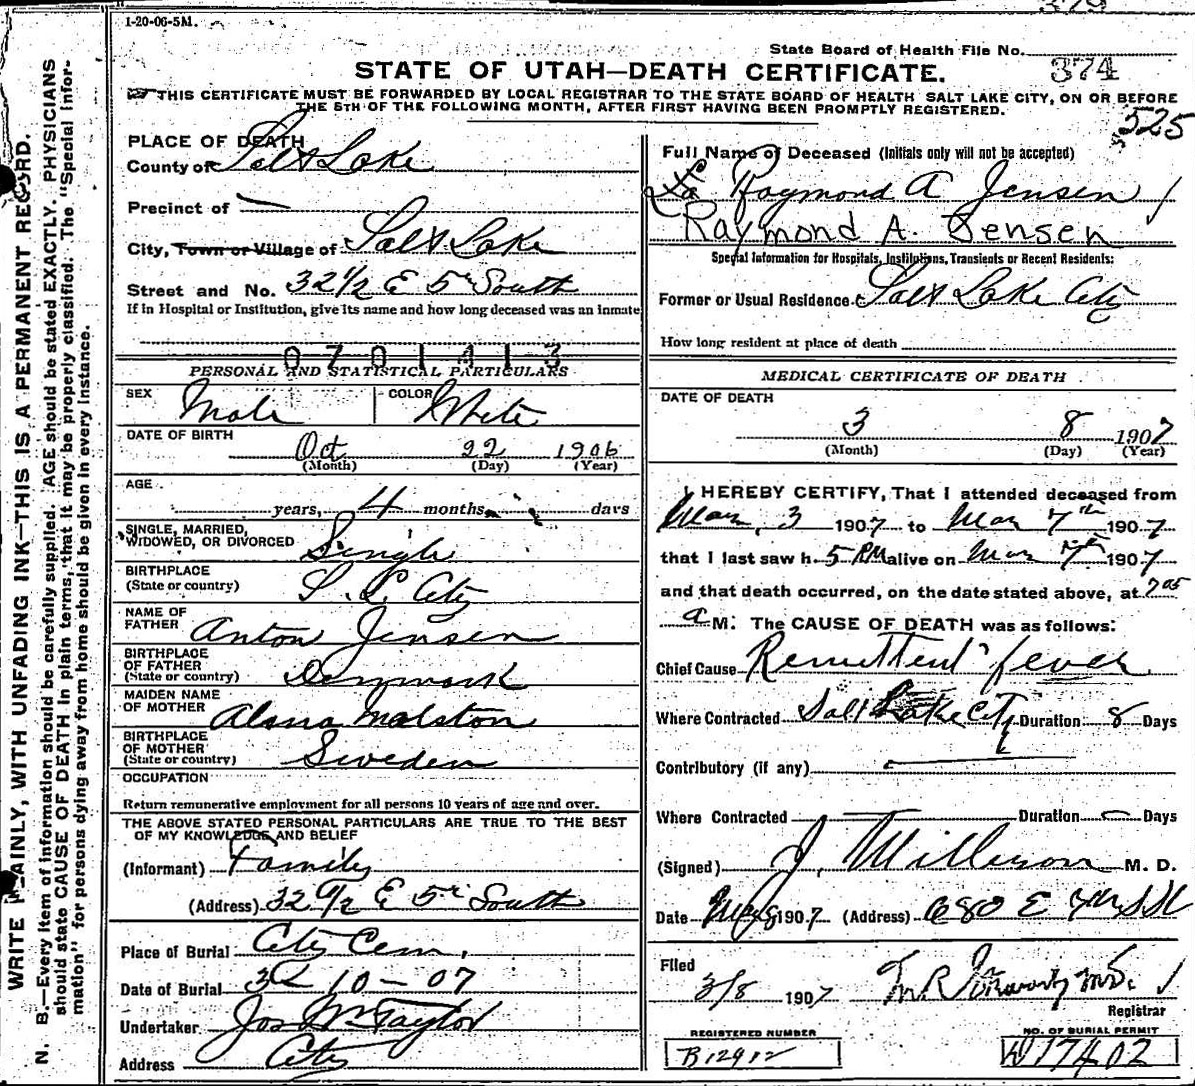 379
1-20-06-5M.
State Board of Health File No.
374
STATE OF UTAH—DEATH CERTIFICATE.
THIS CERTIFICATE MUST BE FORWARDED BY LOCAL REGISTRAR TO THE STATE BOARD OF HEALTH SALT LAKE CITY, ON OR BEFORE
THE 5TH OF THE FOLLOWING MONTH, AFTER FIRST HAVING BEEN PROMPTLY REGISTERED.
525
WRITE PLAINLY, WITH UNFADING INK—THIS IS A PERMANENT RECORD.
N. B.—Every item of information should be carefully supplied. AGE should be stated EXACTLY. PHYSICIANS
should state CAUSE OF DEATH in plain terms, that it may be properly classified. The "Special Infor-
mation" for persons dying away from home should be given in every instance.
PLACE OF DEATH
County of Salt Lake
Precinct of —
City, Town or Village of Salt Lake
Street and No. 32 1/2 E 5th South
If in Hospital or Institution, give its name and how long deceased was an inmate
0701413
PERSONAL AND STATISTICAL PARTICULARS
SEX Male COLOR White
DATE OF BIRTH
Oct 22 1906
(Month) (Day) (Year)
AGE
years, 4 months days
SINGLE, MARRIED,
WIDOWED, OR DIVORCED Single
BIRTHPLACE
(State or country) S. L. City
NAME OF
FATHER Anton Jensen
BIRTHPLACE
OF FATHER
(State or country) Denmark
MAIDEN NAME
OF MOTHER Malston
BIRTHPLACE
OF MOTHER
(State or country) Sweden
OCCUPATION
Return remunerative employment for all persons 10 years of age and over.
THE ABOVE STATED PERSONAL PARTICULARS ARE TRUE TO THE BEST
OF MY KNOWLEDGE AND BELIEF
(Informant) Family
(Address) 32 1/2 E 5th South
Place of Burial City Cem.
Date of Burial 3 - 10 - 07
Undertaker Jos Wm Taylor
Address City
Full Name of Deceased (Initials only will not be accepted)
Raymond A Jensen
Raymond A. Jensen
Special Information for Hospitals, Institutions, Transients or Recent Residents:
Former or Usual Residence Salt Lake City
How long resident at place of death
MEDICAL CERTIFICATE OF DEATH
DATE OF DEATH
3 8 1907
(Month) (Day) (Year)
I HEREBY CERTIFY, That I attended deceased from
Mar. 3 1907 to Mar 7th 1907
that I last saw h 5 PM alive on Mar 7th 1907
and that death occurred, on the date stated above, at 7 05
a M. The CAUSE OF DEATH was as follows:
Chief Cause Remittent fever
Where Contracted Salt Lake City Duration 8 Days
Contributory (if any)
Where Contracted — Duration — Days
(Signed) J. M. D.
Date 1907 (Address) 680 E 4th
Filed
3/8 1907
Registrar
REGISTERED NUMBER
B12912
NO. OF BURIAL PERMIT
17402